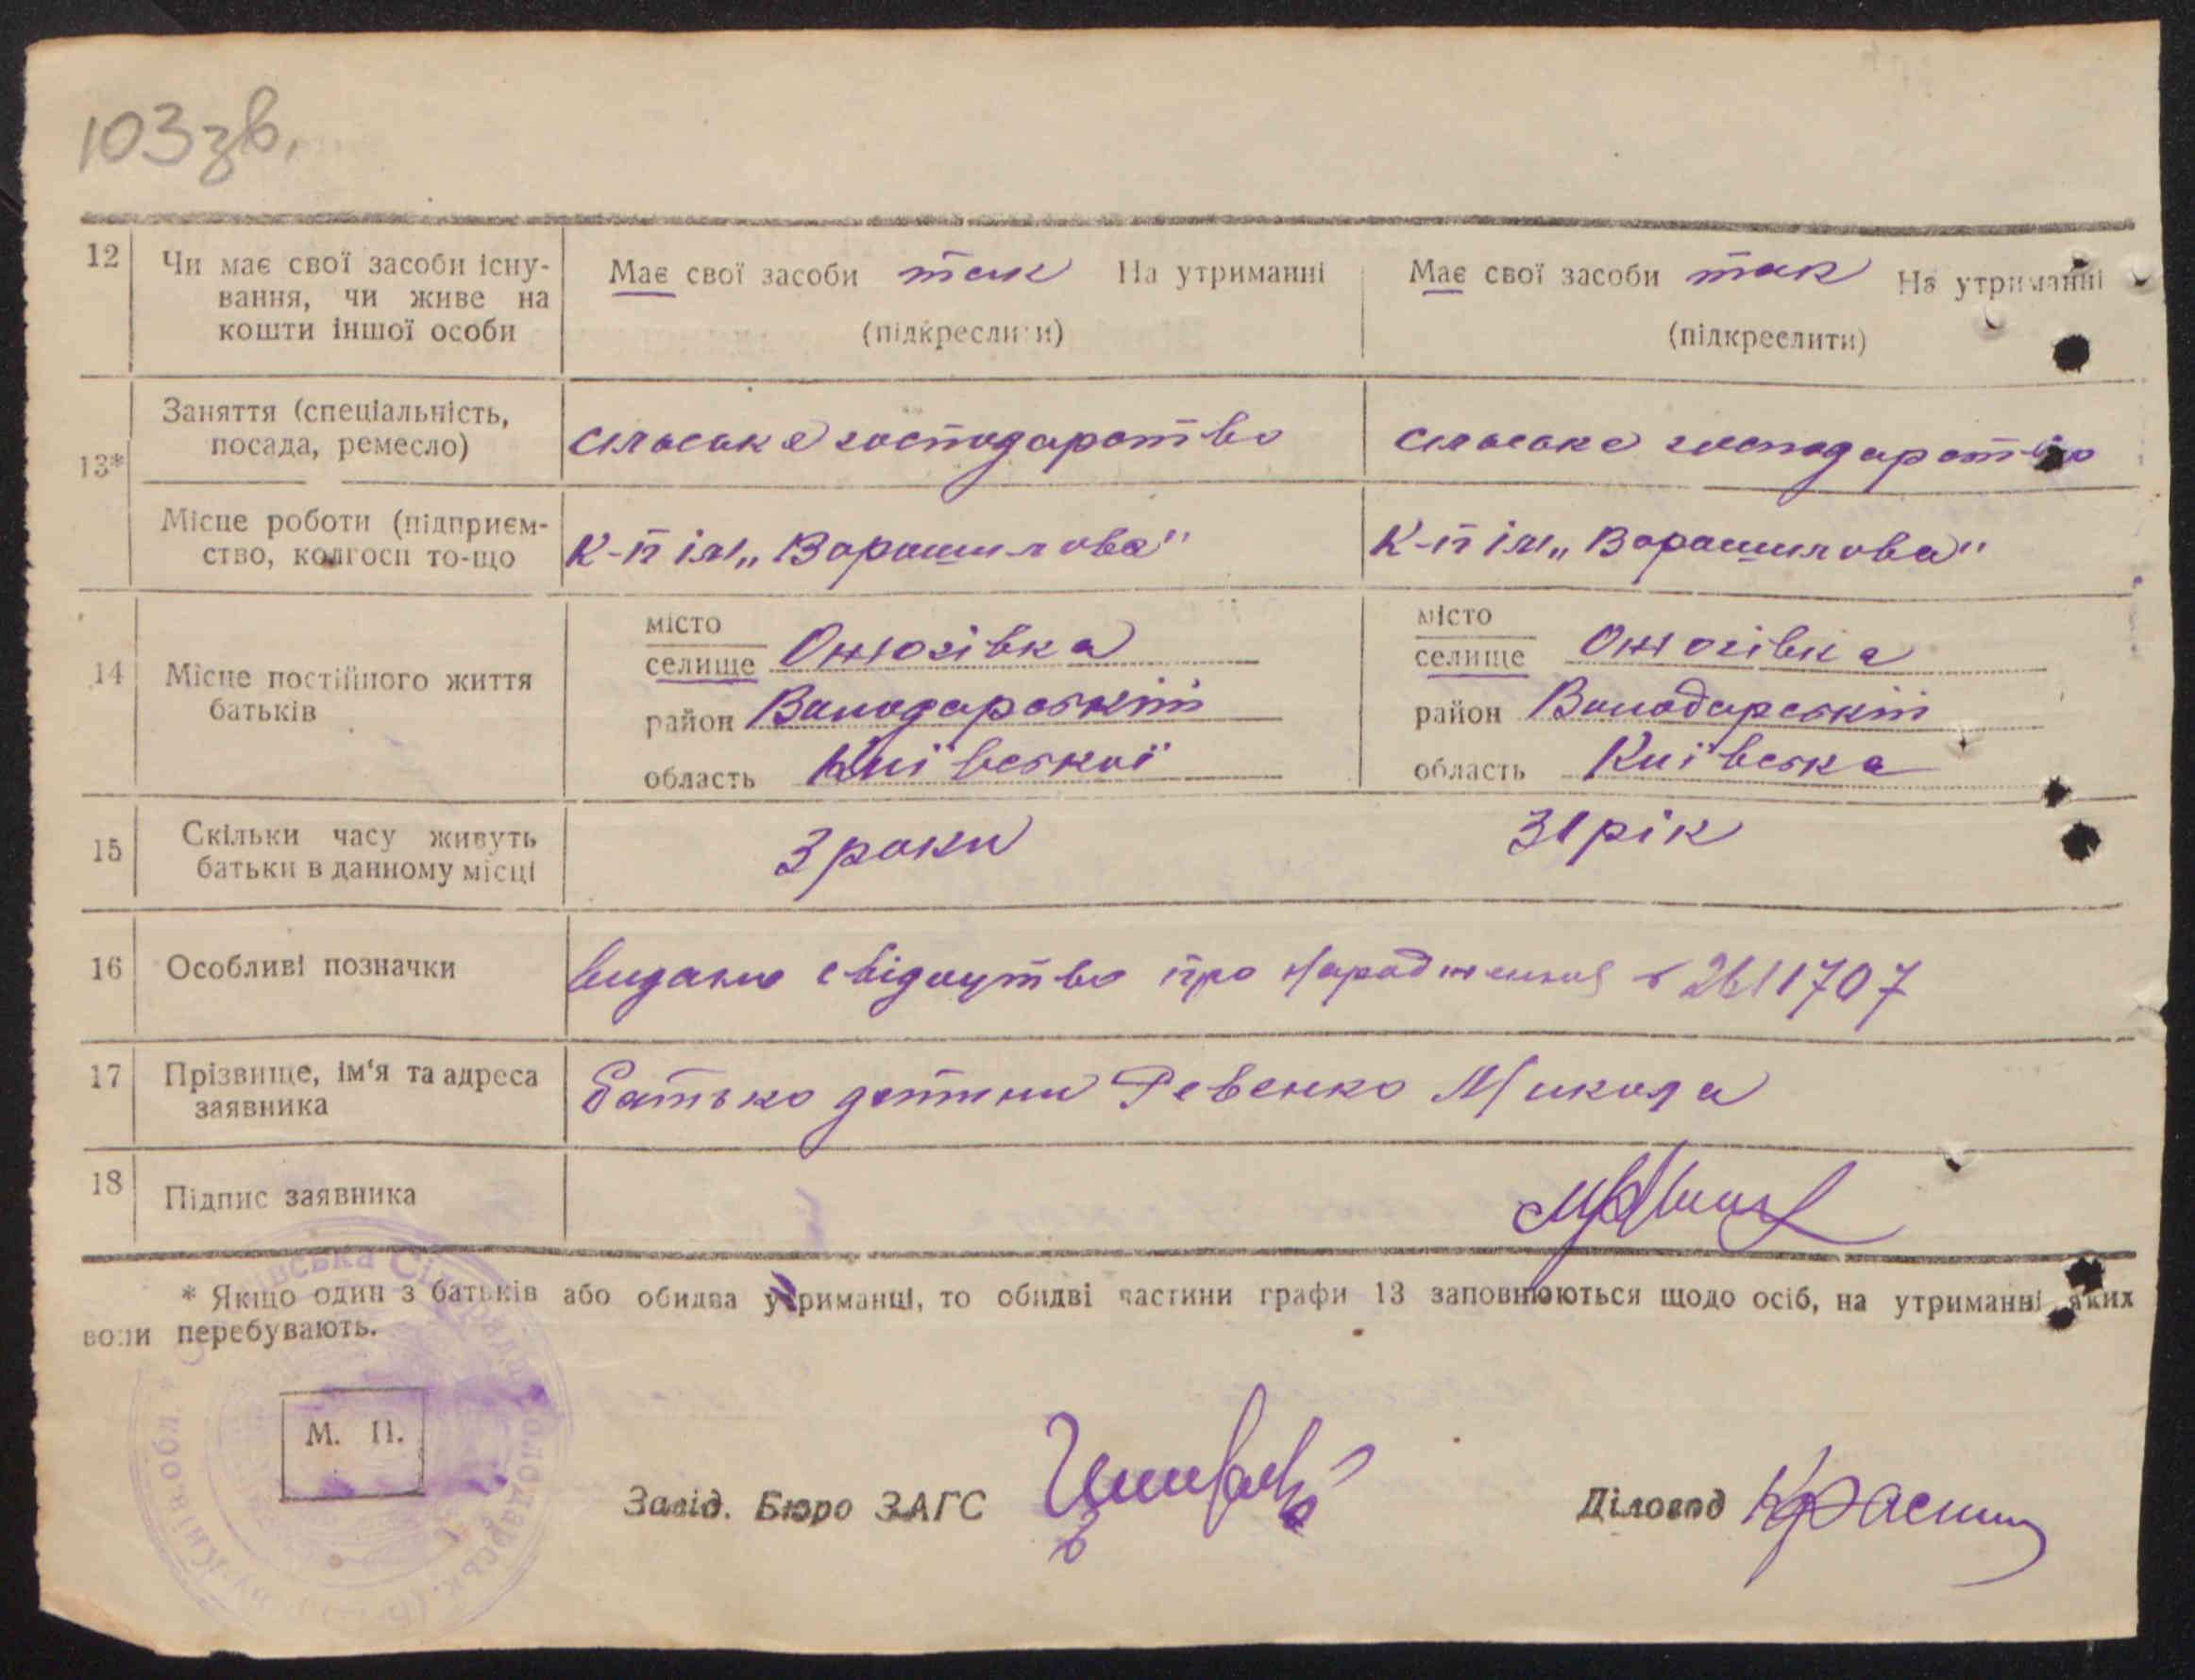 103 зв.
12 Чи має свої засоби існу-
вання, чи живе на
кошти іншої особи
Має свої засоби так На утриманні
(підкреслити)
Має свої засоби так На утриманні
(підкреслити)
13*
Заняття (спеціальність,
посада, ремесло)
сільське господарство
сільське господарство
Місце роботи (підприєм-
ство, колгосп то-що
К-п ім „Ворошилова"
К-п ім „Ворошилова"
14 Місце постійного життя
батьків
місто
селище Ожогівка
район Володарский
область Київської
місто
селище Ожогівка
район Володарский
область Київська
15 Скільки часу живуть
батьки в данному місці
3 роки
31 рік
16 Особливі позначки
видано свідоцтво про народження 2611707
17 Прізвище, ім'я та адреса
заявника
батько дитини Ревенко Микола
18 Підпис заявника
* Якщо один з батьків або обидва утриманці, то обидві частини графи 13 заповнюються щодо осіб, на утриманні яких
вони перебувають.
М. П.
Завід. Бюро ЗАГС
Діловод